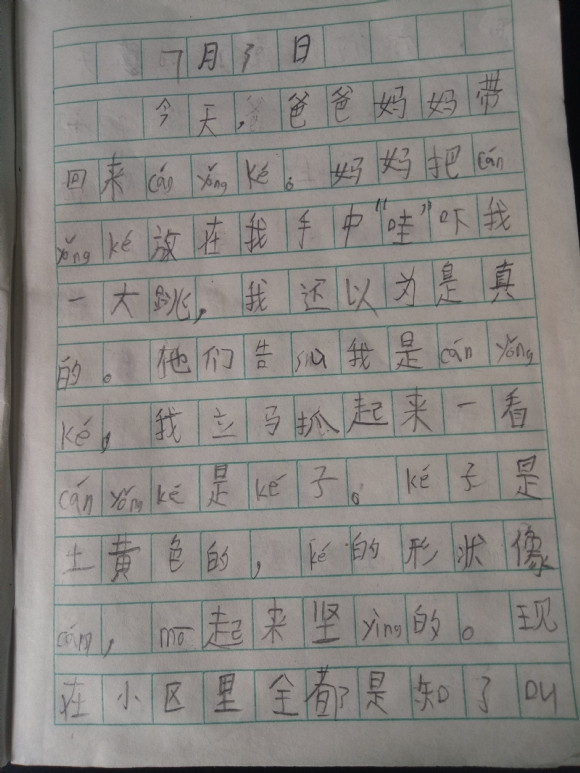 7月3日
今天，爸爸妈妈带
回来cán yǒng ké。妈妈把cán
yǒng ké放在我手中“哇”吓我
一大跳，我还以为是真
的。他们告sù我是cán yǒng
ké，我立马抓起来一看
cán yǒng ké是ké子。ké子是
土黄色的，ké的形状像
cán，mō起来坚yìng的。现
在小区里全都是知了